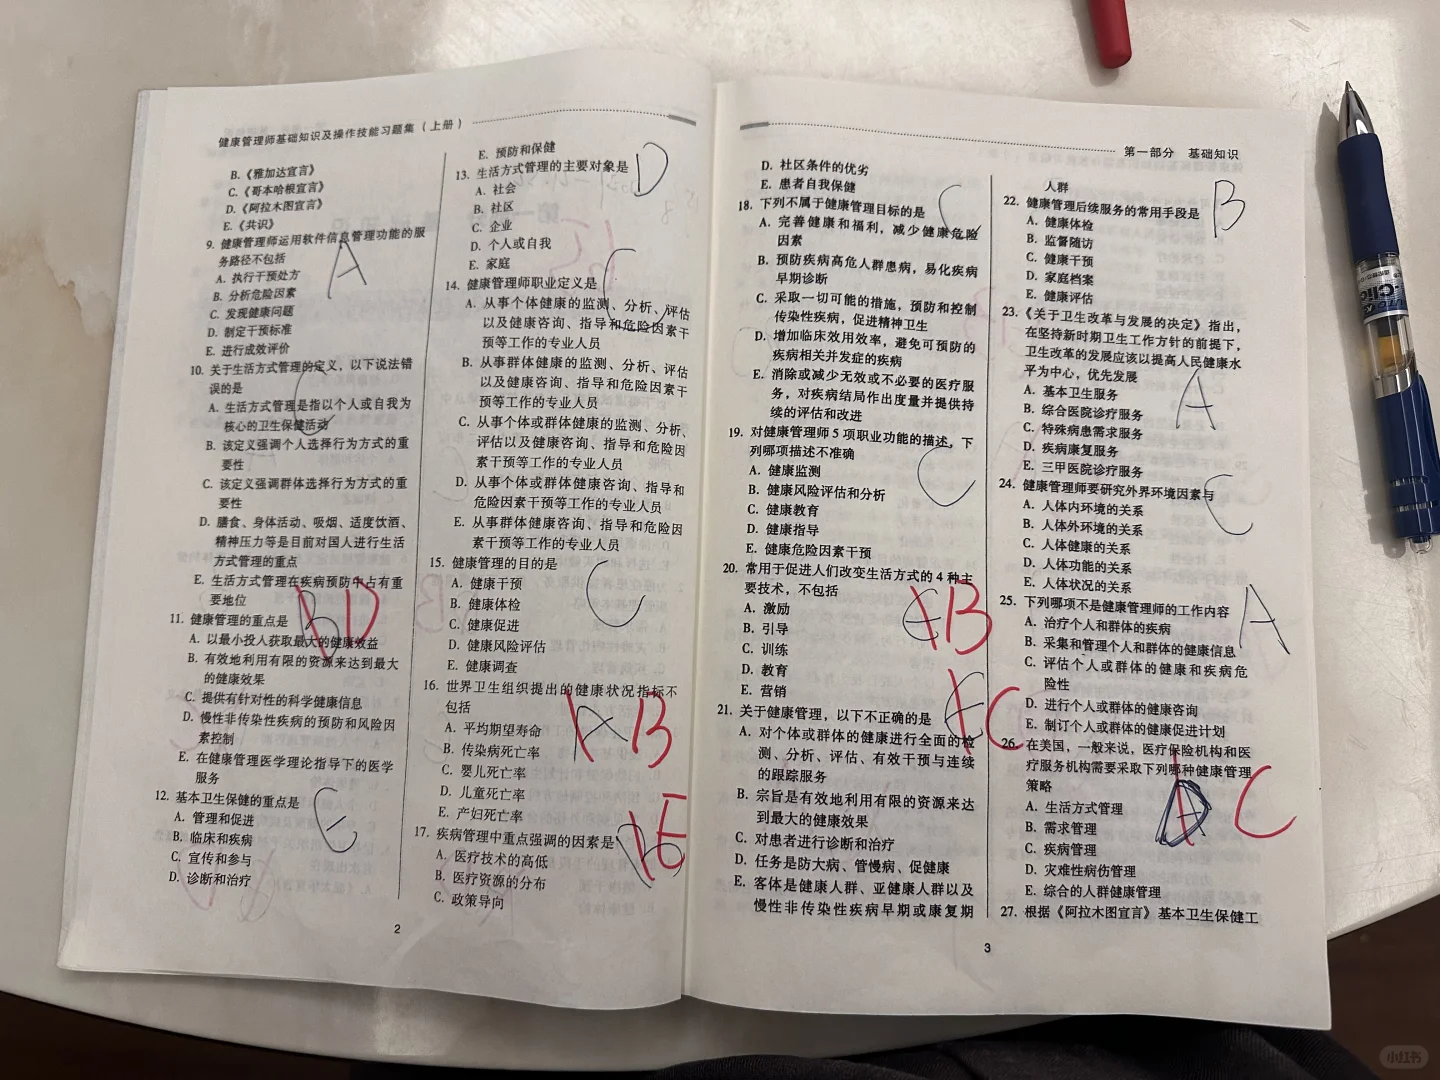 健康管理师基础知识及操作技能习题集（上册）
B.《雅加达宣言》
C.《哥本哈根宣言》
D.《阿拉木图宣言》
E.《共识》
9. 健康管理师运用软件信息管理功能的服
务路径不包括
A
A. 执行干预处方
B. 分析危险因素
C. 发现健康问题
D. 制定干预标准
E. 进行成效评价
10. 关于生活方式管理的定义，以下说法错
误的是
C
A. 生活方式管理是指以个人或自我为
核心的卫生保健活动
B. 该定义强调个人选择行为方式的重
要性
C. 该定义强调群体选择行为方式的重
要性
D. 膳食、身体活动、吸烟、适度饮酒、
精神压力等是目前对国人进行生活
方式管理的重点
E. 生活方式管理在疾病预防中占有重
要地位
11. 健康管理的重点是
B D
A. 以最小投人获取最大的健康效益
B. 有效地利用有限的资源来达到最大
的健康效果
C. 提供有针对性的科学健康信息
D. 慢性非传染性疾病的预防和风险因
素控制
E. 在健康管理医学理论指导下的医学
服务
12. 基本卫生保健的重点是
E
A. 管理和促进
B. 临床和疾病
C. 宣传和参与
D. 诊断和治疗
2
E. 预防和保健
13. 生活方式管理的主要对象是
D
A. 社会
B. 社区
C. 企业
D. 个人或自我
E. 家庭
14. 健康管理师职业定义是
C
A. 从事个体健康的监测、分析、评估
以及健康咨询、指导和危险因素干
预等工作的专业人员
B. 从事群体健康的监测、分析、评估
以及健康咨询、指导和危险因素干
预等工作的专业人员
C. 从事个体或群体健康的监测、分析、
评估以及健康咨询、指导和危险因
素干预等工作的专业人员
D. 从事个体或群体健康咨询、指导和
危险因素干预等工作的专业人员
E. 从事群体健康咨询、指导和危险因
素干预等工作的专业人员
15. 健康管理的目的是
C
A. 健康干预
B. 健康体检
C. 健康促进
D. 健康风险评估
E. 健康调查
16. 世界卫生组织提出的健康状况指标不
包括
A B
A. 平均期望寿命
B. 传染病死亡率
C. 婴儿死亡率
D. 儿童死亡率
E. 产妇死亡率
17. 疾病管理中重点强调的因素是
E
A. 医疗技术的高低
B. 医疗资源的分布
C. 政策导向
第一部分 基础知识
D. 社区条件的优劣
E. 患者自我保健
18. 下列不属于健康管理目标的是
C
A. 完善健康和福利，减少健康危险
因素
B. 预防疾病高危人群患病，易化疾病
早期诊断
C. 采取一切可能的措施，预防和控制
传染性疾病，促进精神卫生
D. 增加临床效用效率，避免可预防的
疾病相关并发症的疾病
E. 消除或减少无效或不必要的医疗服
务，对疾病结局作出度量并提供持
续的评估和改进
19. 对健康管理师 5 项职业功能的描述，下
列哪项描述不准确
C
A. 健康监测
B. 健康风险评估和分析
C. 健康教育
D. 健康指导
E. 健康危险因素干预
20. 常用于促进人们改变生活方式的 4 种主
要技术，不包括
E B
A. 激励
B. 引导
C. 训练
D. 教育
E. 营销
21. 关于健康管理，以下不正确的是
E C
A. 对个体或群体的健康进行全面的检
测、分析、评估、有效干预与连续
的跟踪服务
B. 宗旨是有效地利用有限的资源来达
到最大的健康效果
C. 对患者进行诊断和治疗
D. 任务是防大病、管慢病、促健康
E. 客体是健康人群、亚健康人群以及
慢性非传染性疾病早期或康复期
3
人群
22. 健康管理后续服务的常用手段是
B
A. 健康体检
B. 监督随访
C. 健康干预
D. 家庭档案
E. 健康评估
23.《关于卫生改革与发展的决定》指出，
在坚持新时期卫生工作方针的前提下，
卫生改革的发展应该以提高人民健康水
平为中心，优先发展
A
A. 基本卫生服务
B. 综合医院诊疗服务
C. 特殊病患需求服务
D. 疾病康复服务
E. 三甲医院诊疗服务
24. 健康管理师要研究外界环境因素与
C
A. 人体内环境的关系
B. 人体外环境的关系
C. 人体健康的关系
D. 人体功能的关系
E. 人体状况的关系
25. 下列哪项不是健康管理师的工作内容
A
A. 治疗个人和群体的疾病
B. 采集和管理个人和群体的健康信息
C. 评估个人或群体的健康和疾病危
险性
D. 进行个人或群体的健康咨询
E. 制订个人或群体的健康促进计划
26. 在美国，一般来说，医疗保险机构和医
疗服务机构需要采取下列哪种健康管理
策略
C
A. 生活方式管理
B. 需求管理
C. 疾病管理
D. 灾难性病伤管理
E. 综合的人群健康管理
27. 根据《阿拉木图宣言》基本卫生保健工
小红书